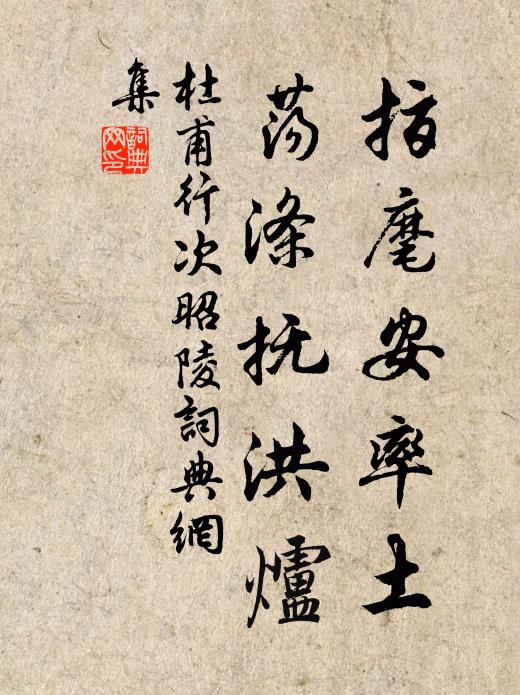 指麾安率土
荡涤抚洪爐
杜甫行次昭陵詞典網
集
詞典網印